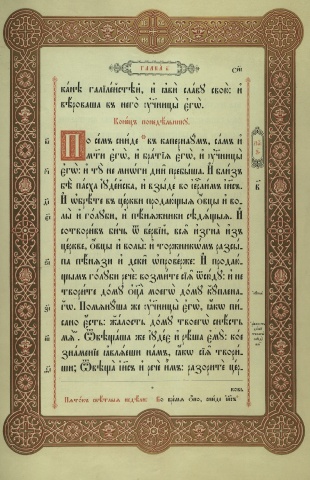 ГЛАВА
канѣ галїлейстѣй, и҆ ꙗ҆ви славу свою: и҆
вѣроваша въ него ᲂу҆ченицы є҆гѡ.
Конецъ понедѣльнику.
По семъ сниде въ капернаумъ, самъ и҆
мати є҆гѡ, и҆ братїѧ є҆гѡ, и҆ ᲂу҆ченицы
є҆гѡ: и҆ ту не многи дни пребыша. И҆ близъ
бѣ пасха їудейска, и҆ взыде во їерлимъ їисъ.
И҆ ѡ҆брѣте въ церкви продающыѧ ѻ҆вцы и҆ во-
лы и҆ голуби, и҆ пѣнѧжники сѣдѧщыѧ. И҆
сотворивъ бичь ѿ вервїй, всѧ и҆згна и҆зъ
церкве, ѻ҆вцы и҆ волы: и҆ торжникѡмъ разсы-
па пѣнѧзи и҆ дски ѡ҆провѣрже: И҆ продаю-
щымъ голуби рече: возмите сїѧ ѿсюду: и҆ не
творите дому ѻ҆ца моегѡ дому купленагѡ.
Помѧнуша же ᲂу҆ченицы є҆гѡ, ꙗ҆кѡ пи-
сано є҆сть: жалость дому твоегѡ снѣсть
мѧ. Ѿвѣщаша же їудее и҆ рѣша є҆му: кое
знаменїе ꙗ҆влѧеши намъ, ꙗ҆кѡ сїѧ твори-
ши; Ѿвѣща їисъ и҆ рече и҆мъ: разорите цер-
ковь
Пѧтокъ свѣтлыѧ недѣли: Во времѧ ѻ҆но, сниде їисъ